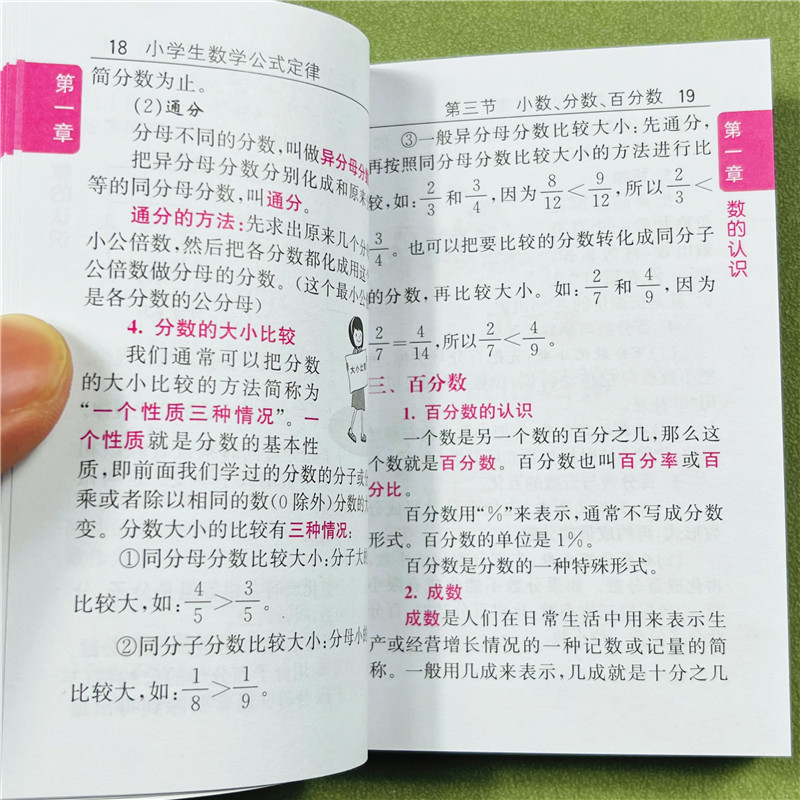 18 小学生数学公式定律
第一章
简分数为止。
(2)通分
分母不同的分数,叫做异分母分数
把异分母分数分别化成和原来
等的同分母分数,叫通分。
通分的方法:先求出原来几个分
小公倍数,然后把各分数都化成用这
公倍数做分母的分数。(这个最小公
是各分数的公分母)
4. 分数的大小比较
我们通常可以把分数
的大小比较的方法简称为
“一个性质三种情况”。一
个性质就是分数的基本性
质,即前面我们学过的分数的分子或
乘或者除以相同的数(0除外)分数的
变。分数大小的比较有三种情况:
①同分母分数比较大小:分子大的
比较大,如:4/5>3/5。
②同分子分数比较大小:分母小的
比较大,如:1/8>1/9。
大小比
第三节 小数、分数、百分数 19
第一章 数的认识
③一般异分母分数比较大小:先通分,
再按照同分母分数比较大小的方法进行比
较,如:2/3和3/4,因为8/12<9/12,所以2/3<
3/4。也可以把要比较的分数转化成同分子
的分数,再比较大小。如:2/7和4/9,因为
2/7=4/14,所以2/7<4/9。
三、百分数
1. 百分数的认识
一个数是另一个数的百分之几,那么这
个数就是百分数。百分数也叫百分率或百
分比。
百分数用“%”来表示,通常不写成分数
形式。百分数的单位是1%。
百分数是分数的一种特殊形式。
2. 成数
成数是人们在日常生活中用来表示生
产或经营增长情况的一种记数或记量的简
称。一般用几成来表示,几成就是十分之几